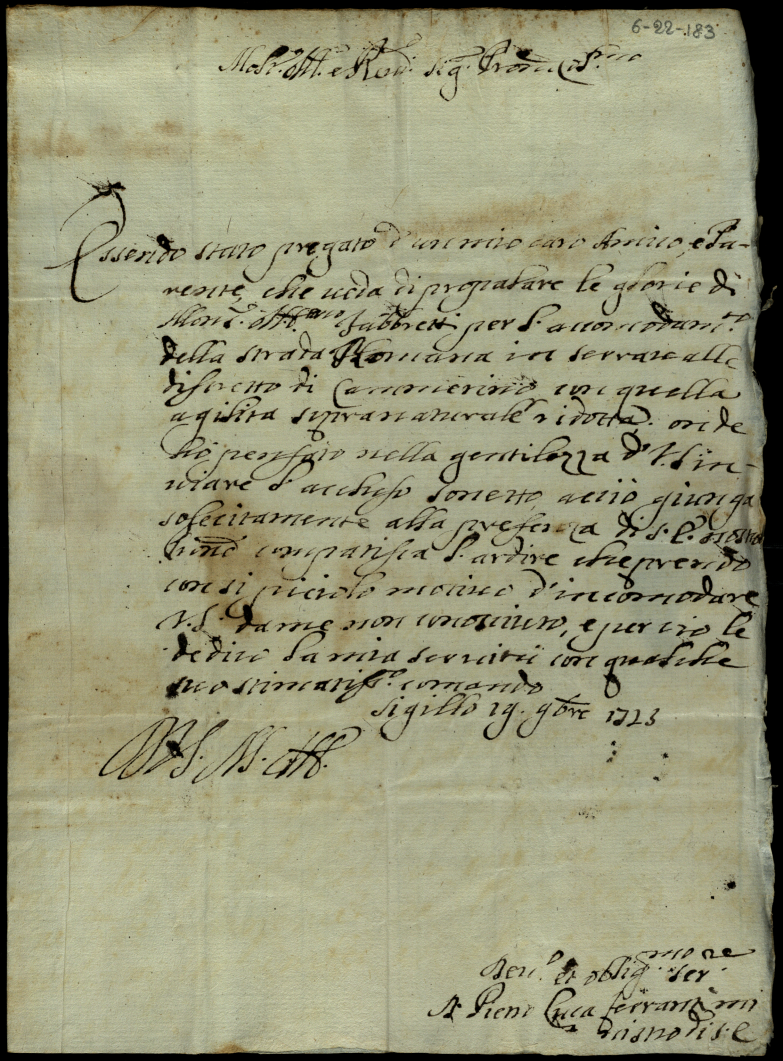 6-22-183
Molt. Ill.e e Rev. Sig. Pron. Col.mo
Essendo stato pregato d'un mio caro Amico, e Pa-
rente, che veda di propalare le glorie di
Mons.r Ill.mo Fabbretti per l'accomodam.to
della strada Romana in serravalle
distretto di Cammerino con quella
agilità sopranaturale ridotta. onde
hò pensato nella gentilezza di V.S. in-
viare l'accluso sonetto acciò giunga
sollecitamente alla presenza di S.E.
compatisca l'ardire che prendo
con si picciolo motivo d'incomodare
V.S. da me non conosciuto, e perciò le
dedico la mia servitù con qualche
suo stimatiss.o comando
Sigillo 19. 9bre 1723
D V.S. M. Ill.
Dev.o et oblig.mo se.re
A. Pietro Luca Ferranti